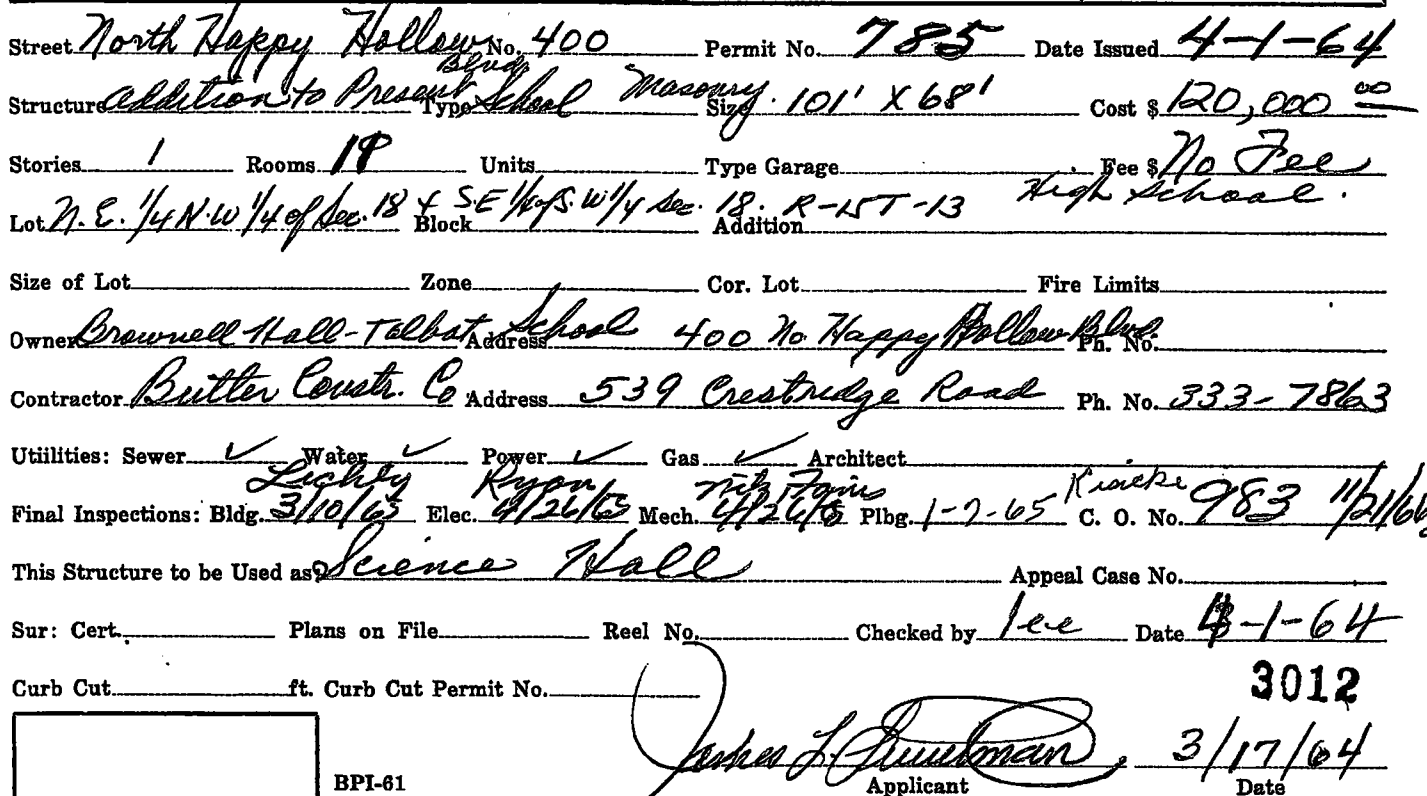 Street North Happy Hollow Blvd. No. 400 Permit No. 785 Date Issued 4-1-64
Structure Addition to Present Type School Masonry. Size 101' X 68' Cost $ 120,000 00
Stories 1 Rooms Units Type Garage Fee $ No Fee
High School.
Lot N.E. 1/4 N.W 1/4 of Sec. 18 & Block S E 1/4 of S.W 1/4 Sec. 18. Addition R-15 T-13
Size of Lot Zone Cor. Lot Fire Limits
Owner Brownell Hall-Talbot School Address 400 No Happy Hollow Blvd. Ph. No.
Contractor Butter Constr. Co Address 539 Crestridge Road Ph. No. 333-7863
Utiilities: Sewer ✓ Water ✓ Power ✓ Gas ✓ Architect
Lichty Ryan
Final Inspections: Bldg. 3/10/65 Elec. 4/26/65 Mech. 4/26/65 Plbg. 1-7-65 C. O. No. 983 11/21/66
This Structure to be Used as Science Hall Appeal Case No.
Sur: Cert. Plans on File Reel No. Checked by lee Date 4-1-64
Curb Cut ft. Curb Cut Permit No. 3012
James L. 3/17/64
BPI-61 Applicant Date